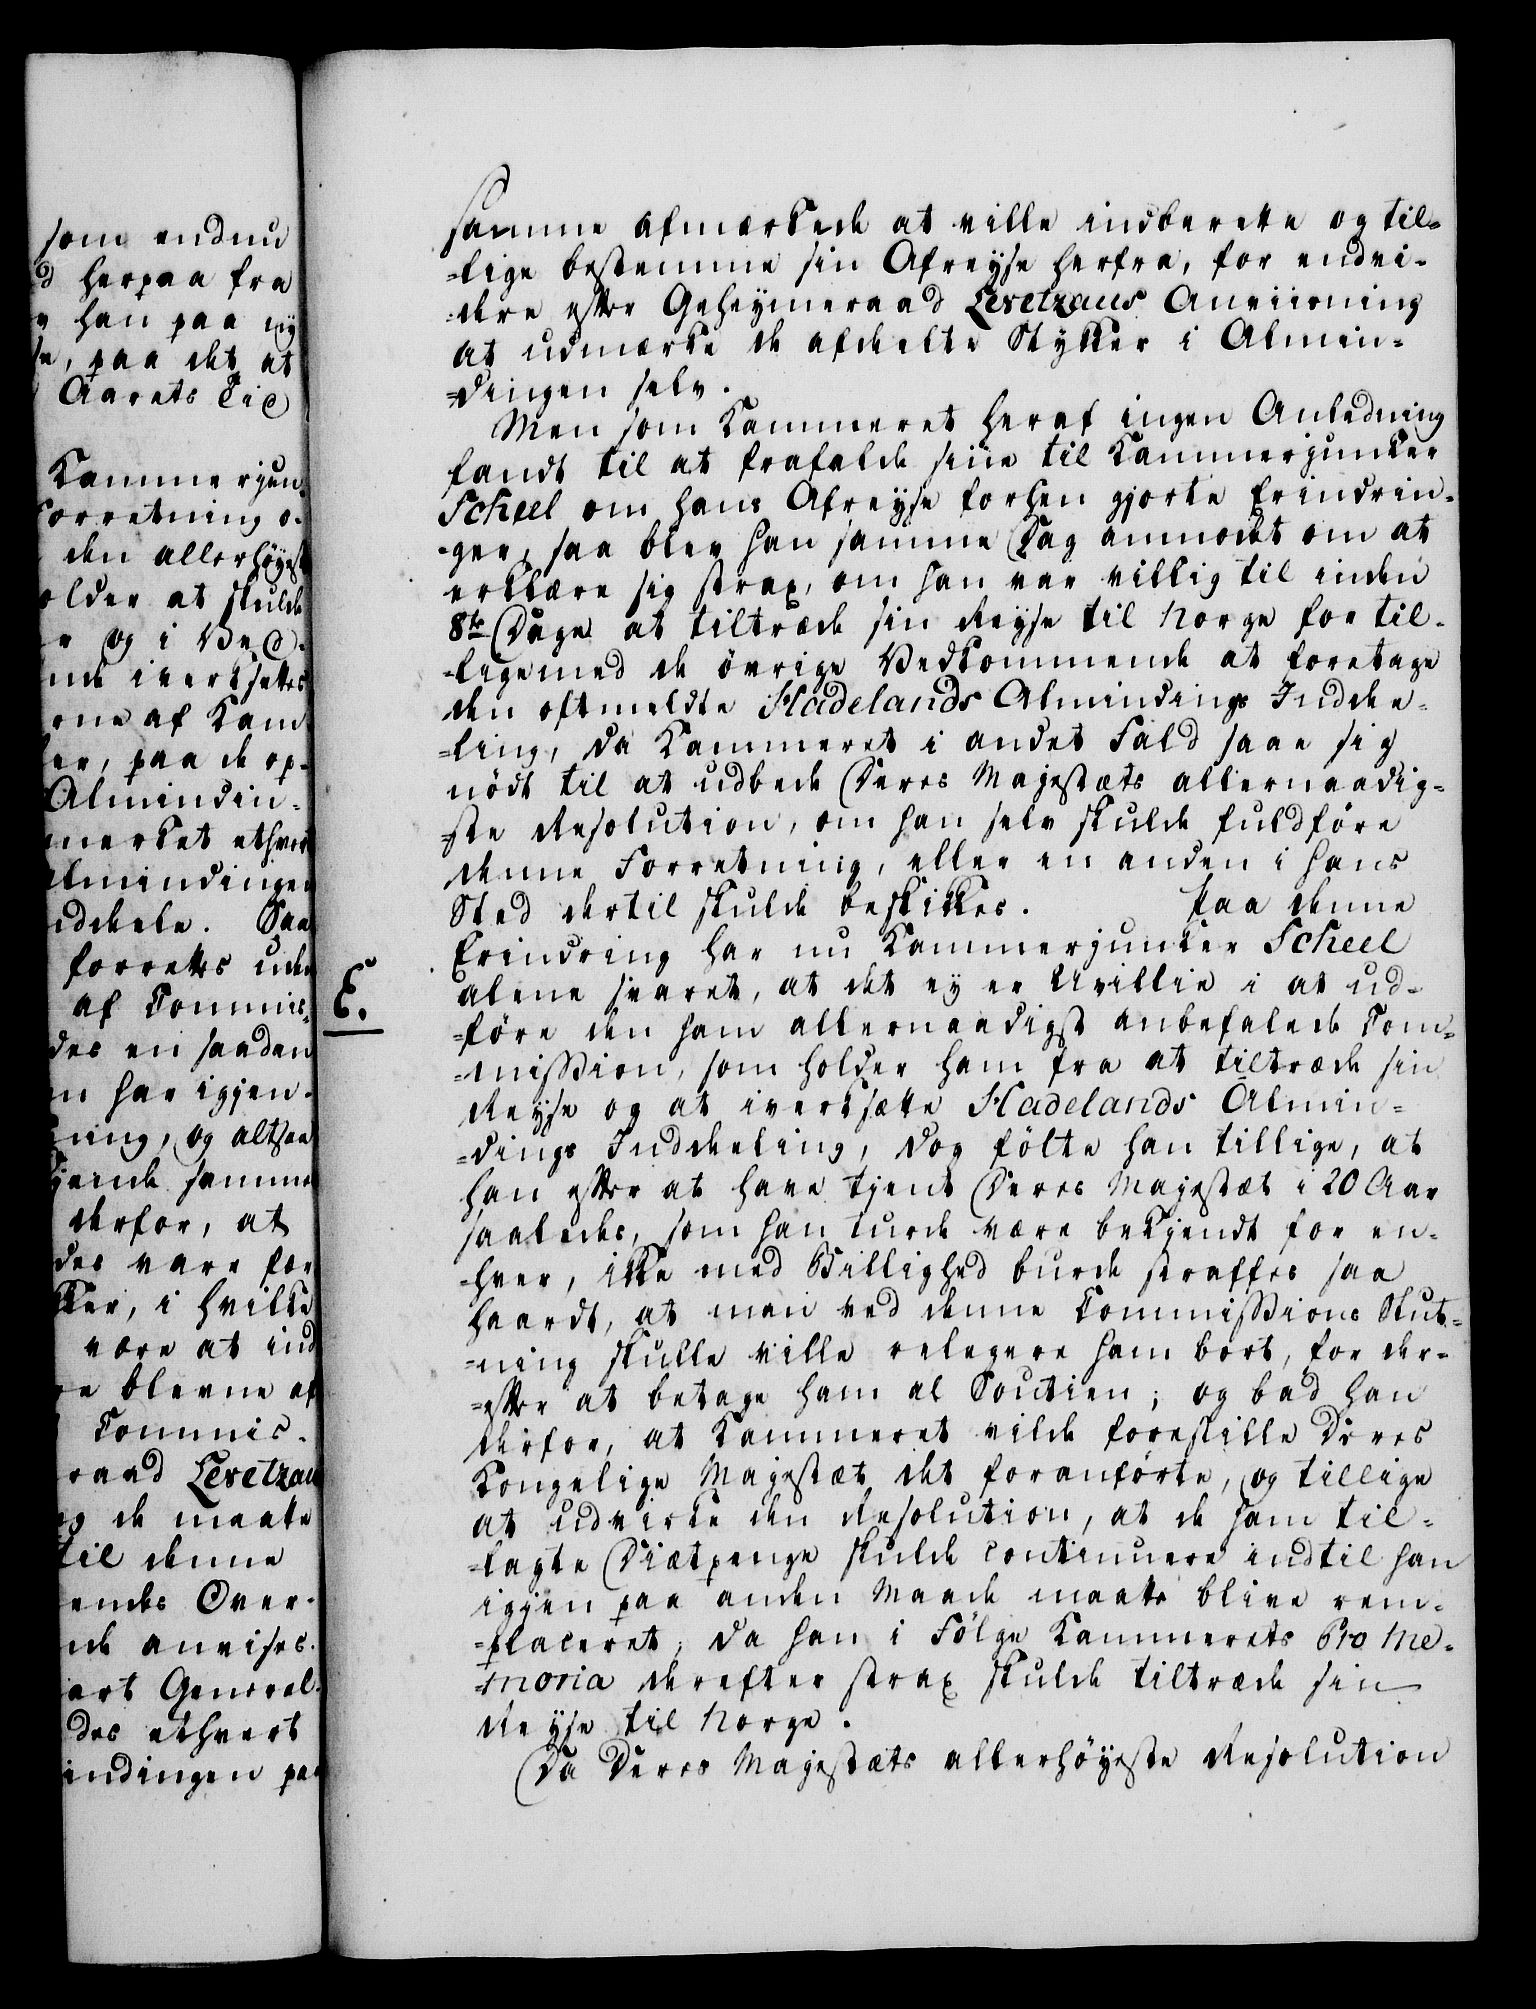 som endnu
d herpaa fra
han paa ny
se, paa det at
Aarets Tid
Kammerjun-
Forretning o-
den allerhøyest
older at skulde
og i Ved-
nde iverksettes
rne af Kam-
er, paa de op-
Almindin-
merket ethvert
Almindingen
inddeele. Saa
forrettes uden
af Commis-
des en saadan
n har igjen-
ning, og altsaa
gjende samme
derfor, at
des vare for
ker, i hvilke
være at ind
re blevne af
Commis-
raad Levetzau
og de maatte
til denne
endes Over-
nde anvises.
art General-
des ethvert
indingen paa
samme afmærkede at ville indberette og til-
-lige bestemme sin Afreyse herfra, for endvi-
-dere efter Geheymeraad Levetzaus Anviisning
at udmærke de afdeelte Stykker i Almin-
-dingen selv.
Men som Kammeret heraf ingen Anledning
fandt til at frafalde sine til Kammerjunker
Scheel om hans Afreyse forhen gjorte Erindrin-
-ger, saa blev han samme Dag anmodet om at
erklære sig strax, om han var villig til inden
8te Dage at tiltræde sin Reyse til Norge for til-
-ligemed de øvrige Vedkommende at foretage
den oftmeldte Hadelands Almindings Inddee-
-ling, da Kammeret i andet Fald saae sig
nødt til at udbede Deres Majestæts allernaadig-
-ste Resolution, om han selv skulde fuldføre
denne Forretning, eller en anden i hans
Sted dertil skulde beskikkes. Paa denne
Erindring har nu Kammerjunker Scheel
E.
alene svaret, at det ey er Uvillie i at ud-
-føre den ham allernaadigst anbefalede Com-
-mission, som holder ham fra at tiltræde sin
Reyse og at iverksætte Hadelands Almin-
-dings Inddeeling, dog følte han tillige, at
han efter at have tjent Deres Majestæt i 20 Aar
saaledes, som han turde være bekjendt for en-
-hver, ikke med Billighed burde straffes saa
haardt, at man ved denne Commissions Slut-
-ning skulle ville relegere ham bort, for der-
-efter at betage ham al Soutien; og bad han
derfor, at Kammeret vilde forestille Deres
Kongelige Majestæt det foranførte, og tillige
at udvirke den Resolution, at de ham til-
-lagte Diætpenge skulde continuere indtil han
igjen paa anden Maade maatte blive rem-
-placeret, da han i Følge Kammerets Pro Me-
-moria derefter strax skulde tiltræde sin
Reyse til Norge.
Da Deres Majestæts allerhøyeste Resolution